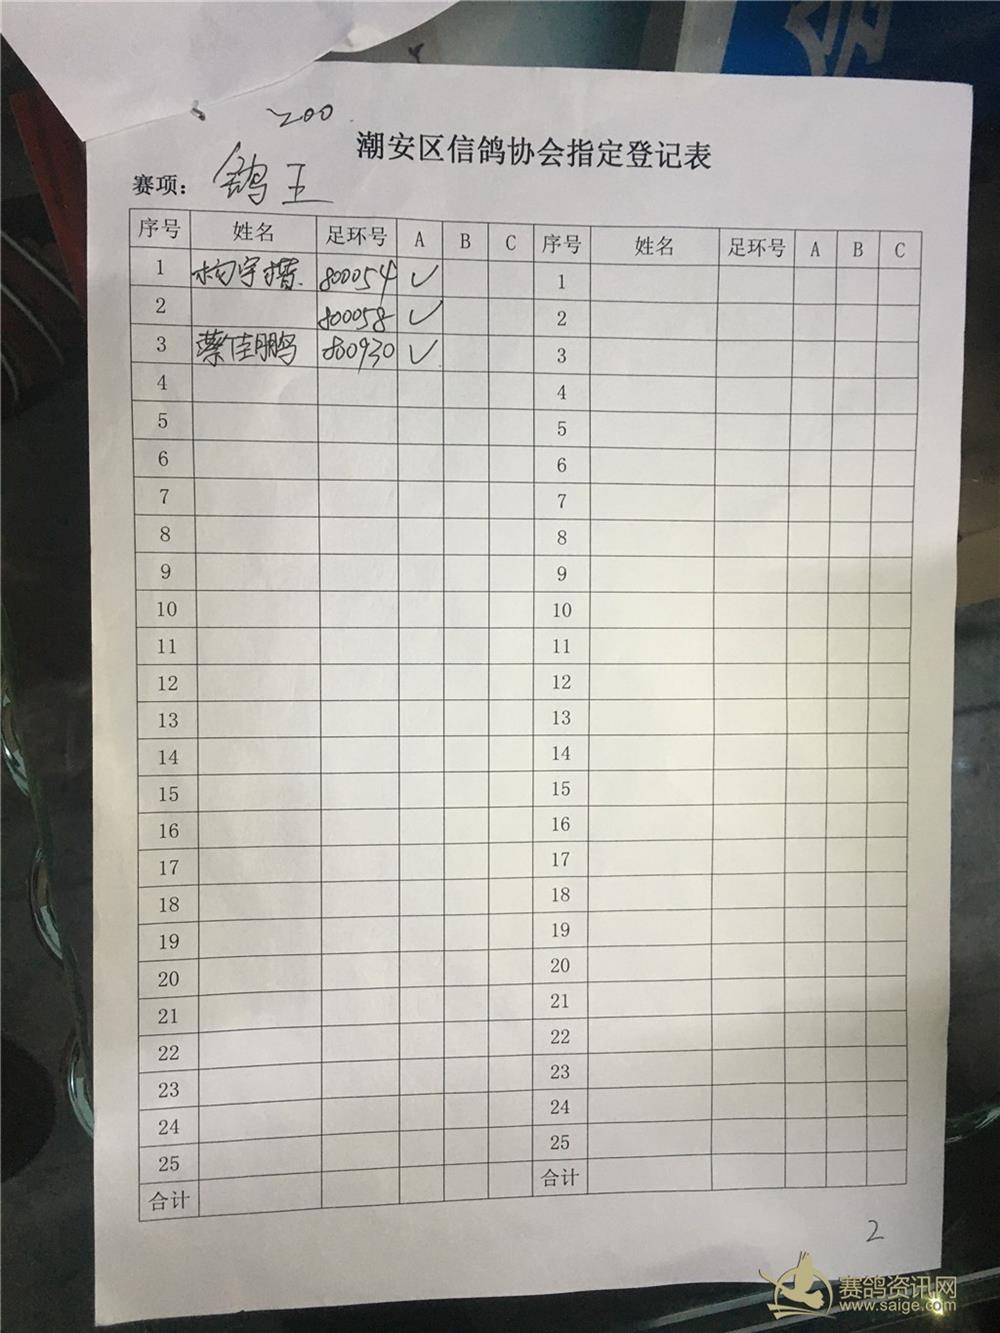 200
潮安区信鸽协会指定登记表
赛项： 鸽王
序号 姓名 足环号 A B C 序号 姓名 足环号 A B C
1 800054 ✓ 1
2 800058 ✓ 2
3 蔡佳鹏 880930 ✓ 3
4 4
5 5
6 6
7 7
8 8
9 9
10 10
11 11
12 12
13 13
14 14
15 15
16 16
17 17
18 18
19 19
20 20
21 21
22 22
23 23
24 24
25 25
合计 合计
2
赛鸽资讯网
www.saige.com